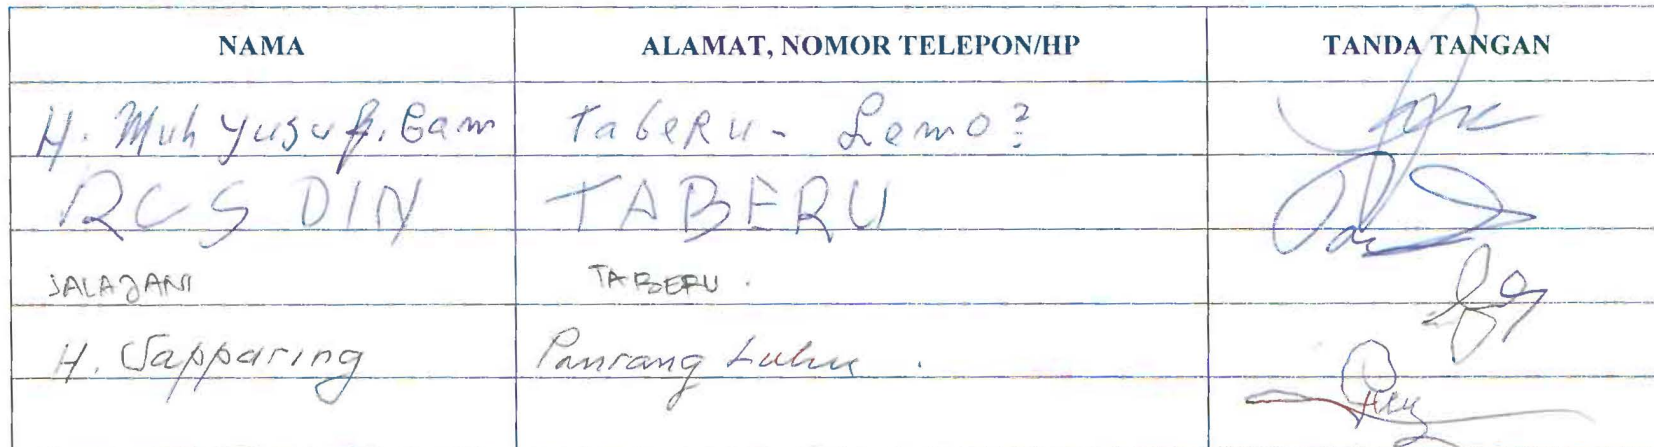 NAMA ALAMAT, NOMOR TELEPON/HP TANDA TANGAN
H. Muh Yusuf. Bam TabeRu - Lemo?
RCS DIN TABERU
JALAJANI TABERU.
H. Japparing Panrang Luhu.